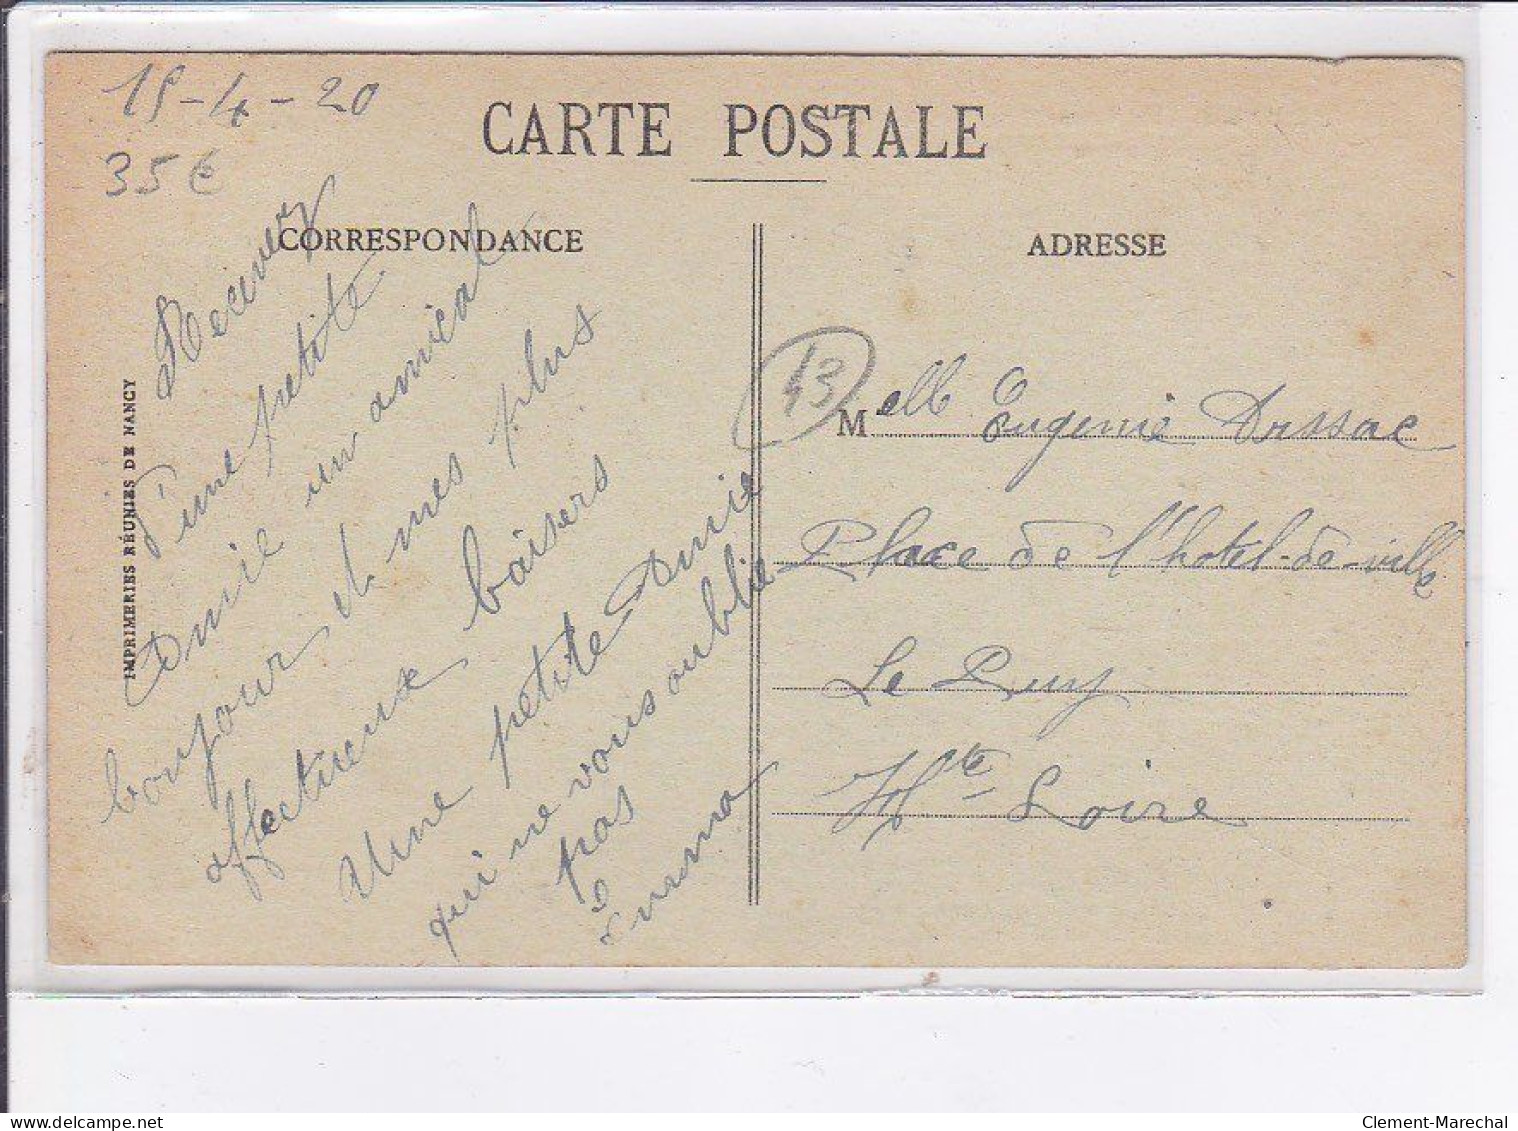 15-4-20
35€
CARTE POSTALE
CORRESPONDANCE
ADRESSE
Recevez
d'une petite
Amie un amical
bonjour et mes plus
affectueux baisers
Une petite Amie
qui ne vous oublie
pas
Emma
IMPRIMERIES RÉUNIES DE NANCY
13
Melle Eugenie
Place de l'hotel-de-ville
Le Puy
Hte Loire
delcampe.net
Clement-Marechal